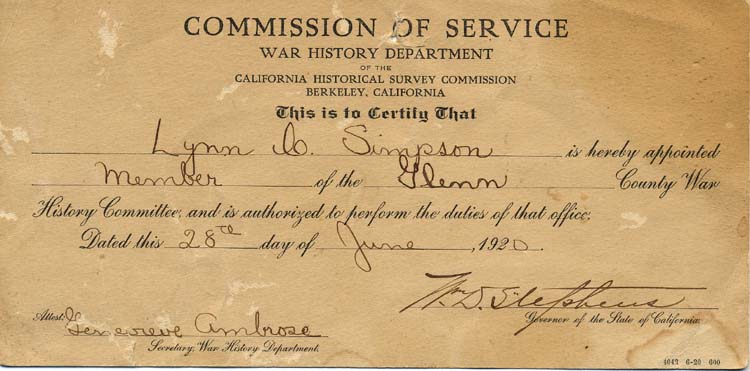 COMMISSION OF SERVICE
WAR HISTORY DEPARTMENT
OF THE
CALIFORNIA HISTORICAL SURVEY COMMISSION
BERKELEY, CALIFORNIA
This is to Certify That
Lynn D. Simpson is hereby appointed
Member of the Glenn County War
History Committee, and is authorized to perform the duties of that office.
Dated this 28th day of June, 1920.
Wm. D. Stephens
Governor of the State of California.
Attest: Genevieve Ambrose
Secretary, War History Department.
4043 6-20 600